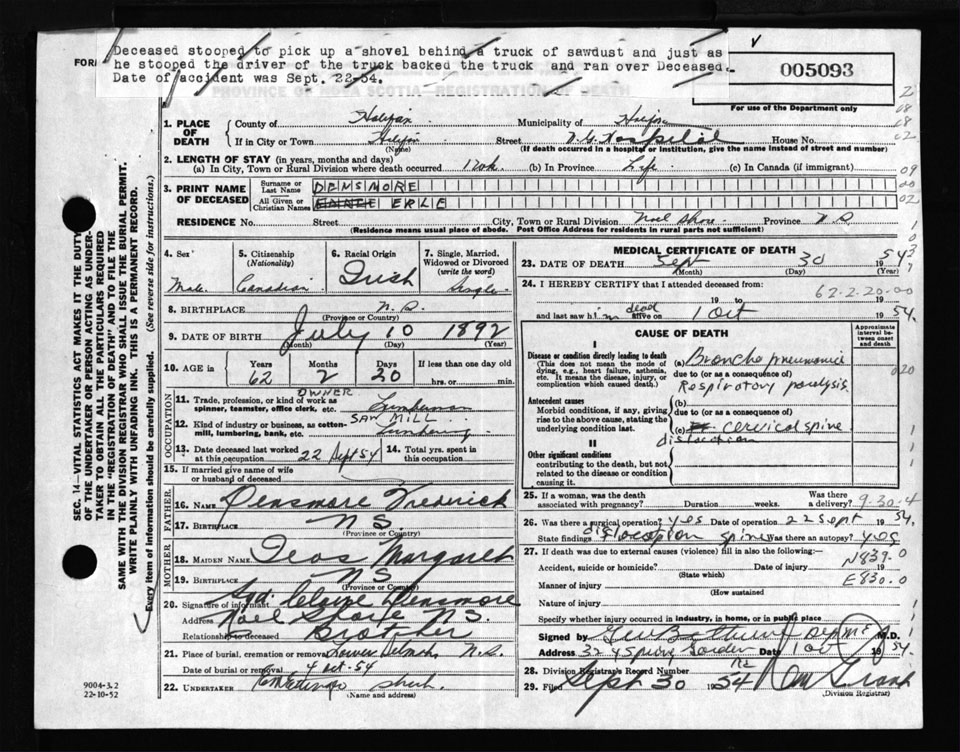 Deceased stooped to pick up a shovel behind a truck of sawdust and just as
he stooped the driver of the truck backed the truck and ran over Deceased.
Date of accident was Sept. 22-54.
FOR
005093
For use of the Department only
PROVINCE OF NOVA SCOTIA—REGISTRATION OF DEATH
1. PLACE OF DEATH County of Halifax Municipality of Halifax
If in City or Town Halifax (Name) Street V.G. Hospital House No.
(If death occurred in a hospital or institution, give the name instead of street and number)
2. LENGTH OF STAY (in years, months and days)
(a) In City, Town or Rural Division where death occurred (b) In Province Life (c) In Canada (if immigrant)
3. PRINT NAME OF DECEASED
Surname or Last Name DENSMORE
All Given or Christian Names ERLE
RESIDENCE No. Street City, Town or Rural Division Noel Shore Province N.S.
(Residence means usual place of abode. Post Office Address for residents in rural parts not sufficient)
4. Sex Male
5. Citizenship (Nationality) Canadian
6. Racial Origin Irish
7. Single, Married, Widowed or Divorced (write the word) Single
8. BIRTHPLACE N.S.
(Province or Country)
9. DATE OF BIRTH July 10 1892
(Month) (Day) (Year)
10. AGE in Years 62 Months 2 Days 20 If less than one day old hrs. or min.
OCCUPATION
11. Trade, profession, or kind of work as spinner, teamster, office clerk, etc. OWNER Lumberman
12. Kind of industry or business, as cotton-mill, lumbering, bank, etc. SAW MILL Lumbering
13. Date deceased last worked at this occupation 22 Sept 54
14. Total yrs. spent in this occupation
15. If married give name of wife or husband of deceased
FATHER
16. NAME Densmore Fredrick
17. BIRTHPLACE N S.
(Province or Country)
MOTHER
18. MAIDEN NAME Margaret
19. BIRTHPLACE N S
(Province or Country)
20. Signature of informant Sgd. Densmore
Address Noel Shore N.S.
Relationship to deceased Brother
21. Place of burial, cremation or removal Lower Selmah, N.S.
Date of burial or removal 4 Oct-54
22. UNDERTAKER
(Name and address)
MEDICAL CERTIFICATE OF DEATH
23. DATE OF DEATH Sept 30 1954
(Month) (Day)
24. I HEREBY CERTIFY that I attended deceased from
62-2-20-00
19 to 19
and last saw him dead alive on 1 Oct 1954.
CAUSE OF DEATH
Approximate interval between onset and death
I
Disease or condition directly leading to death
(This does not mean the mode of dying, e.g., heart failure, asthenia, etc. It means the disease, injury, or complication which caused death.)
(a) Broncho pneumonia
due to (or as a consequence of)
Respiratory paralysis
Antecedent causes
Morbid conditions, if any, giving rise to the above cause, stating the underlying condition last.
(b)
due to (or as a consequence of)
(c) cervical spine
dislocation
II
Other significant conditions
contributing to the death, but not related to the disease or condition causing it.
25. If a woman, was the death associated with pregnancy? Duration weeks. Was there a delivery?
9-30-4
26. Was there a surgical operation? yes Date of operation 22 Sept 1954.
State findings dislocation spine Was there an autopsy? yes
27. If death was due to external causes (violence) fill in also the following:—
Accident, suicide or homicide? Date of injury 19
(State which)
N839.0
E830.0
Manner of injury
(How sustained)
Nature of injury
Specify whether injury occurred in industry, in home, or in public place
Signed by M.D.
Address 324 Spring Garden Rd Date 1 Oct 1954.
28. Division Registrar's Record Number
29. Filed Sept 30 1954
(Division Registrar)
SEC. 14—VITAL STATISTICS ACT MAKES IT THE DUTY
OF THE UNDERTAKER OR PERSON ACTING AS UNDER-
TAKER TO OBTAIN ALL THE PARTICULARS REQUIRED
IN THE "REGISTRATION OF DEATH" AND TO FILE THE
SAME WITH THE DIVISION REGISTRAR WHO SHALL ISSUE THE BURIAL PERMIT.
WRITE PLAINLY WITH UNFADING INK. THIS IS A PERMANENT RECORD.
Every item of information should be carefully supplied. (See reverse side for instructions.)
9004-3.2
22-10-52